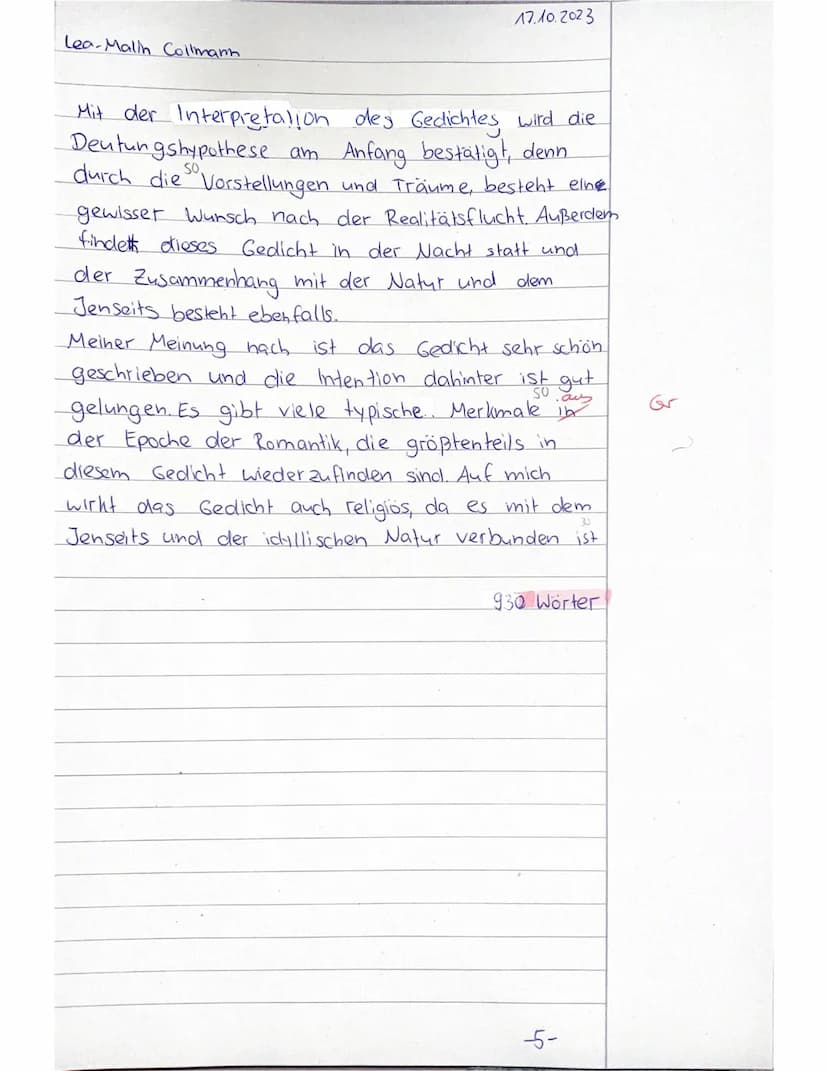 17.10.2023
Lea-Malin Collmann
Mit der Interpretation des Gedichtes wird die
Deutungshypothese am Anfang bestätigt, denn
50
durch die Vorstellungen und Träume, besteht eine
gewisser Wunsch nach der Realitätsflucht. Außerdem
findet dieses Gedicht in der Nacht statt und
der Zusammenhang mit der Natur und dem
Jenseits besteht ebenfalls.
Meiner Meinung nach ist das Gedicht sehr schön
geschrieben und die Intention dahinter ist gut
50 aus
gelungen. Es gibt viele typische Merkmale in Gr
der Epoche der Romantik, die größtenteils in
diesem Gedicht wiederzufinden sind. Auf mich
wirkt das Gedicht auch religiös, da es mit dem
Jenseits und der idyllischen Natur verbunden ist
930 Wörter
-5-